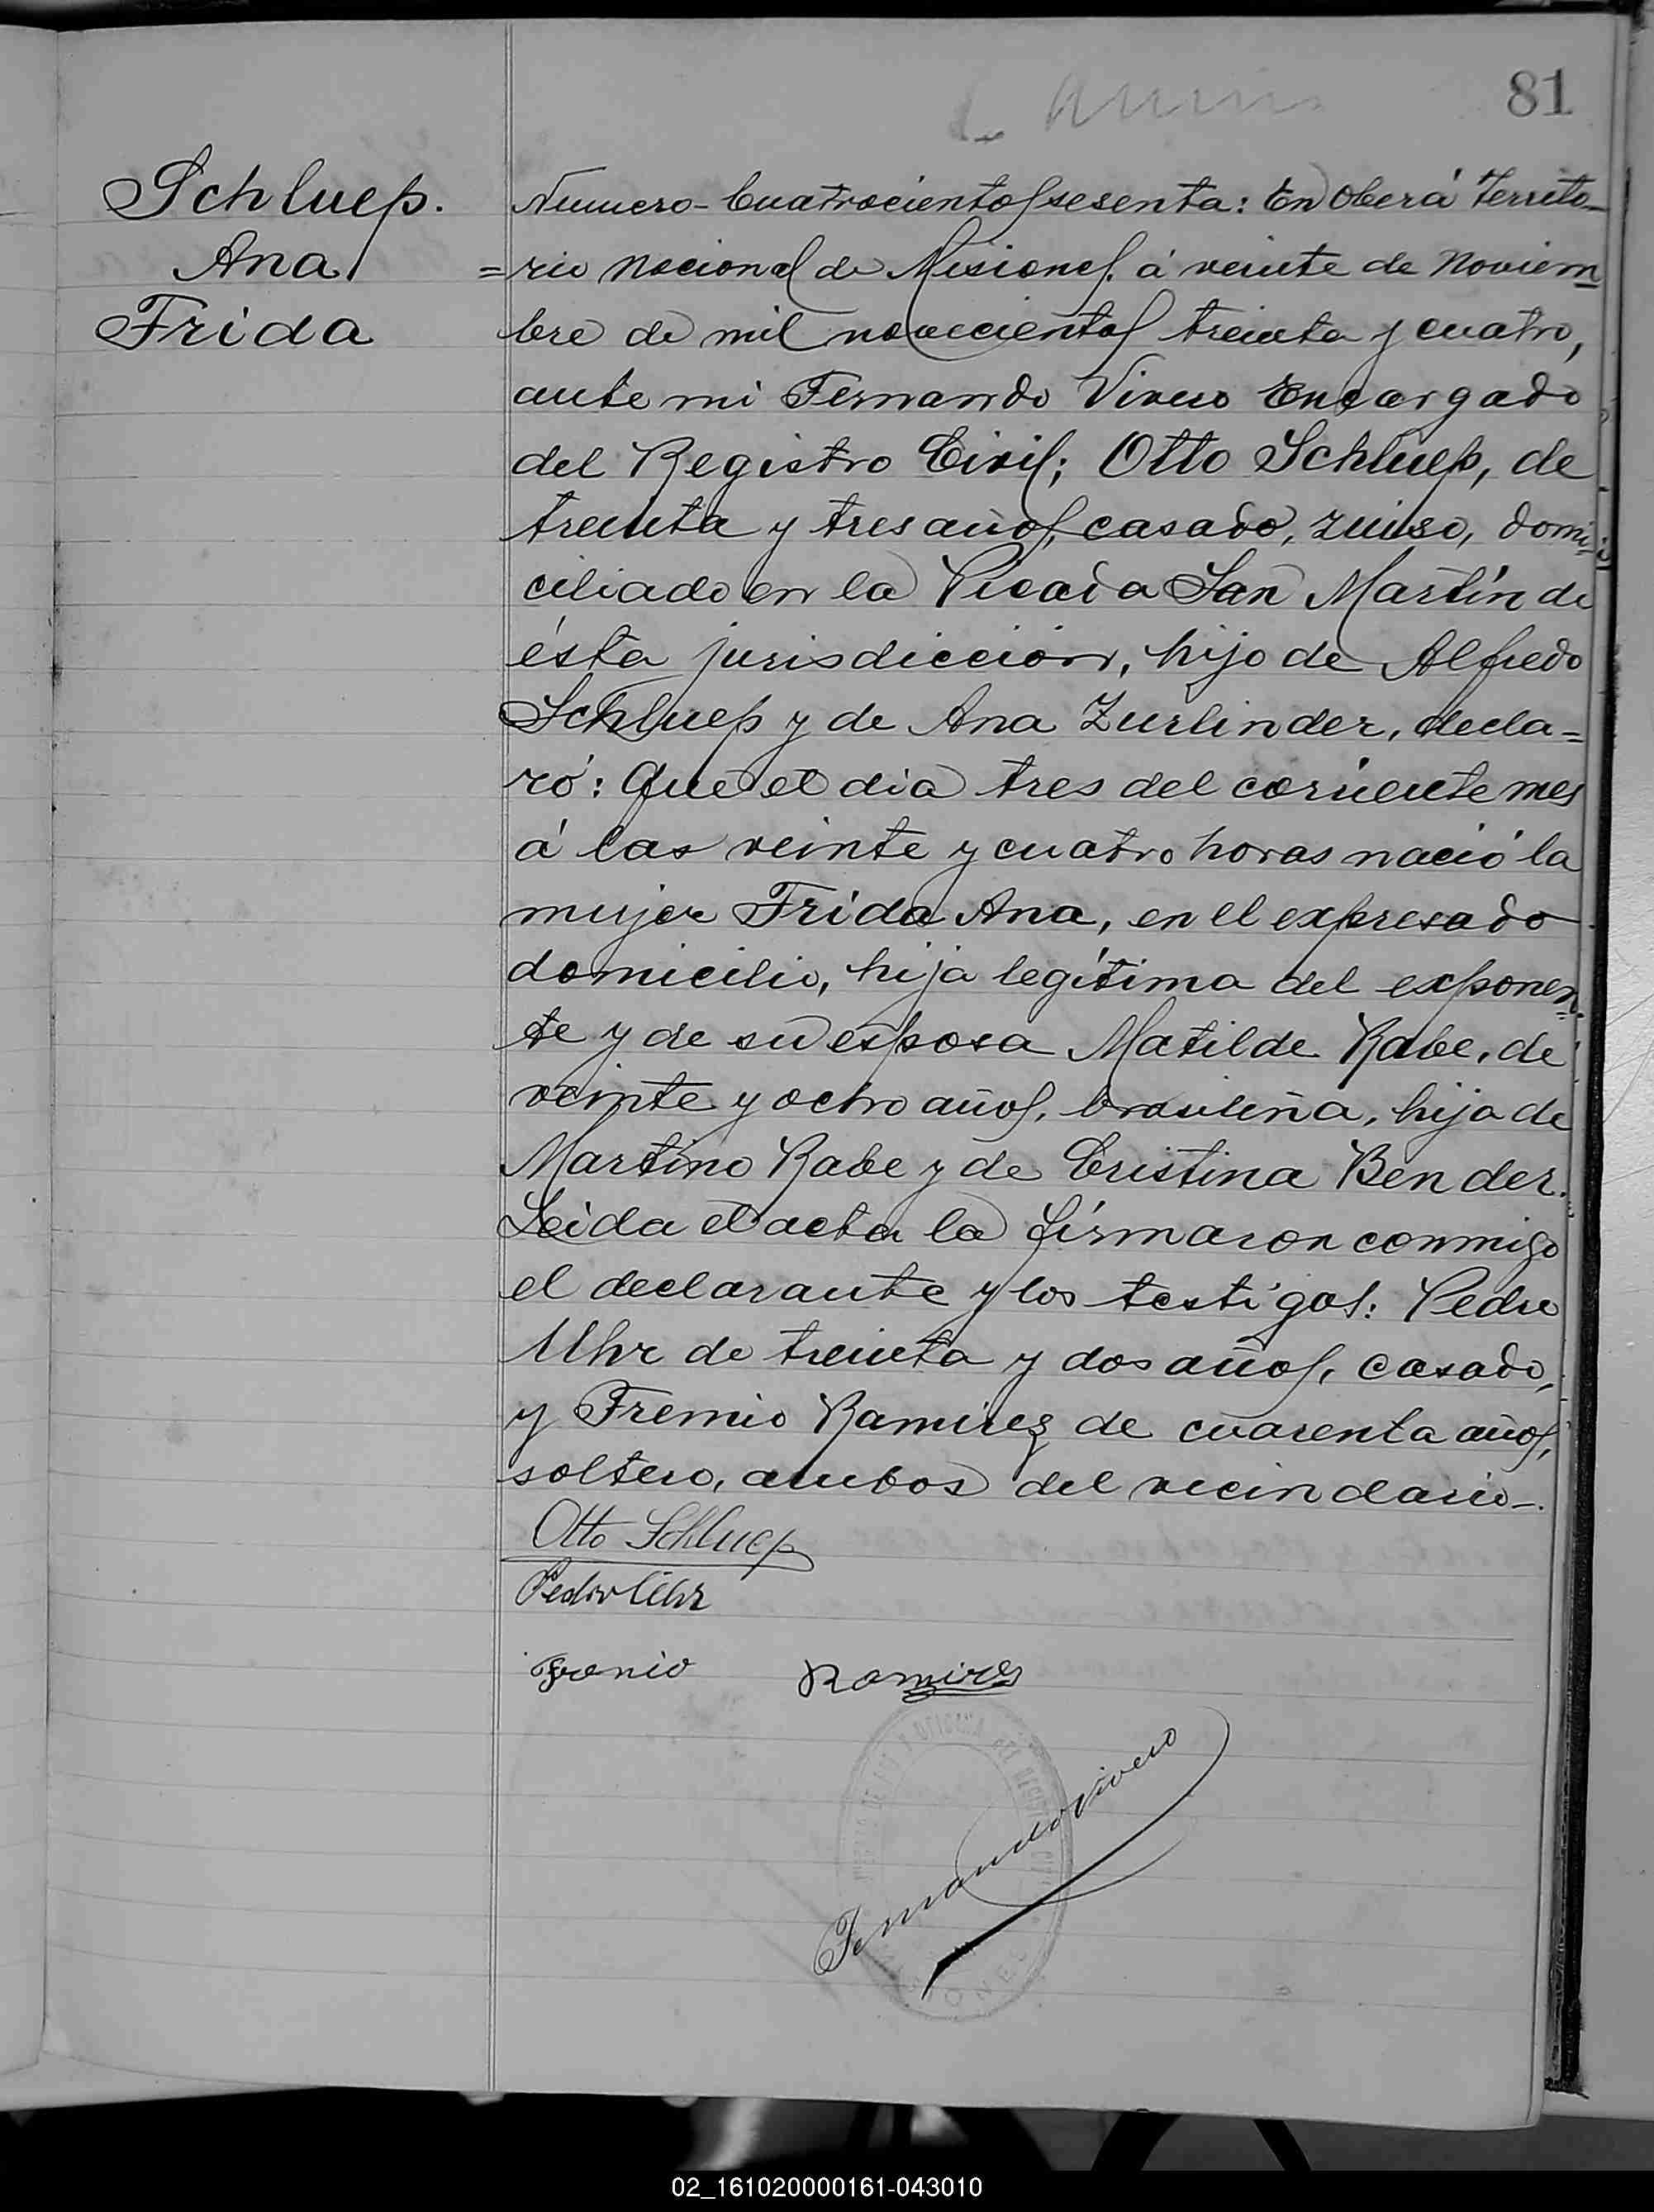 81
Schluep.
Ana
Frida
Numero - Cuatrocientos sesenta: En Oberá Territo-
=rio Nacional de Misiones, á veinte de Noviem
bre de mil novecientos treinta y cuatro,
ante mi Fernando Vivero Encargado
del Registro Civil; Otto Schluep, de
treinta y tres años, casado, zuiso, domi-
ciliado en la Picada San Martín de
ésta jurisdiccion, hijo de Alfredo
Schluep y de Ana Zurlinder, decla=
ró: Que el dia tres del corriente mes
á las veinte y cuatro horas nació la
mujer Frida Ana, en el expresado
domicilio, hija legítima del exponen
te y de su esposa Matilde Rabe, de
veinte y ocho años, brasileña, hija de
Martino Rabe y de Cristina Bender.
Leida el acta la firmaron conmigo
el declarante y los testigos: Pedro
Uhr de treinta y dos años, casado,
y Fremio Ramirez de cuarenta años,
soltero, ambos del vecindario-.
Otto Schluep
Pedro Uhr
Fremio Ramires
Fernando Vivero
02_161020000161-043010